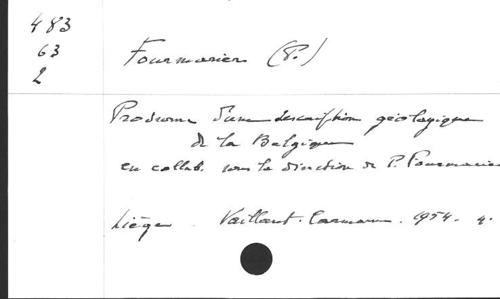 483
63
2
Fourmarier (P.)
Prodrome d'une description géologique
de la Belgique
en collab. sous la direction de P. Fourmarier
Liège. Vaillant-Carmanne. 1954. 4.